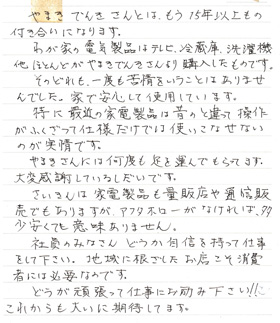 やまき でんき さんとは、もう15年以上もの
付き合いになります。
わが家の電気製品はテレビ、冷蔵庫、洗濯機
他ほとんどがやまきでんきさんより購入したものです。
そのどれも、一度も苦情をいうことはありませ
んでした。家で安心して使用しています。
特に最近の家電製品は昔のと違って操作
がふくざつで仕様だけでは使いこなせない
のが実情です。
やまきさんには何度も足を運んでもらってます。
大変感謝しているしだいです。
さいきんは家電製品も量販店や通信販
売でもありますが、アフタホローがなければ、多
少安くても意味ありません。
社員のみなさん どうか自信を持って仕事
をして下さい。地域に根ざしたお店こそ消費
者には必要なのです。
どうか頑張って仕事にお励み下さい!!
これからも大いに期待してます。